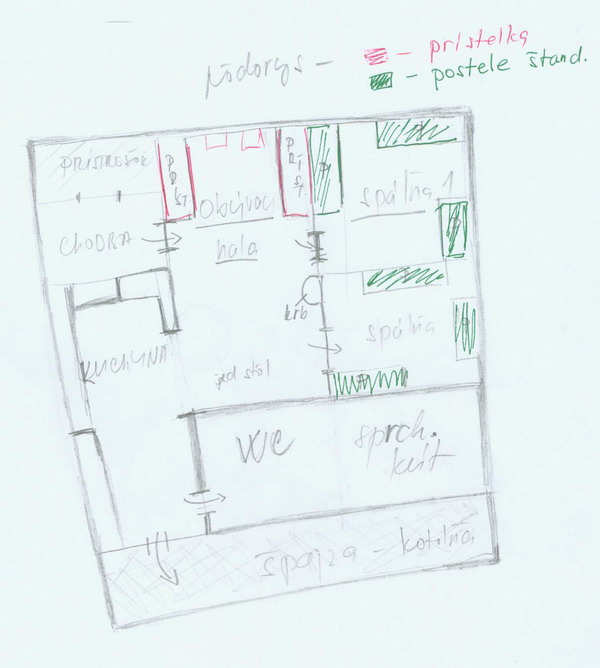 pôdorys –
– prístelka
– postele štand.
PRÍSTREŠOK
PRÍST.
PRÍST.
Obývac.
hala
spálňa 1
CHODBA
krb
spálňa
KUCHYŇA
jed stôl
WC
sprch.
kút
špajza – kotolňa